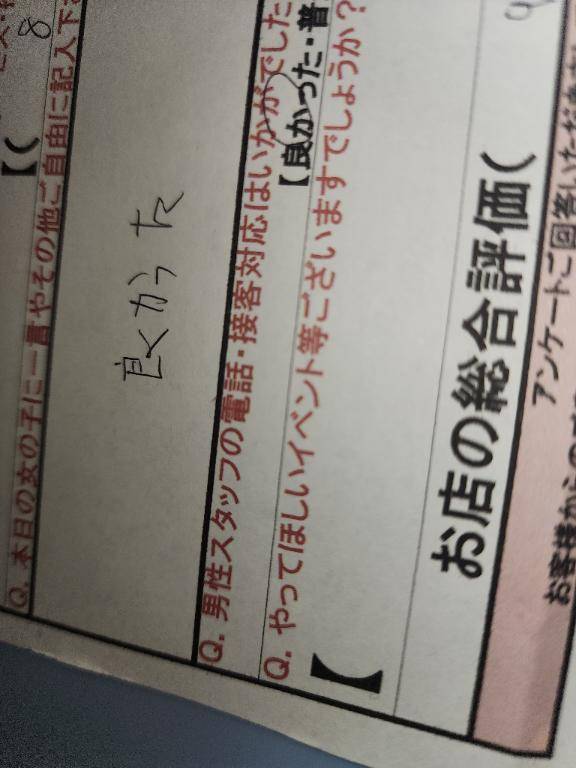 8
【(
Q. 本日の女の子に一言やその他ご自由に記入下
良くかった
Q. 男性スタッフの電話・接客対応はいかがでした
【良かった・普
Q. やってほしいイベント等ございますでしょうか？
【
お店の総合評価(
アンケートご回答いただきま
お客様からの